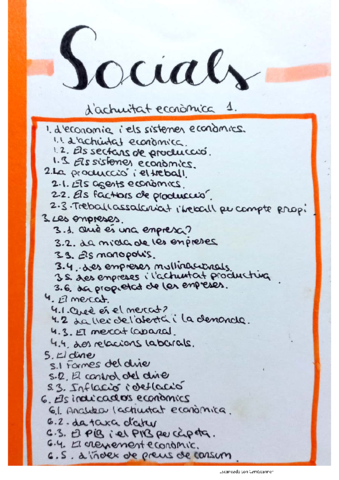 Socials
L'activitat econòmica 1.
1. L'economia i els sistemes econòmics.
1.1. L'activitat econòmica.
1.2. Els sectors de producció.
1.3. Els sistemes econòmics.
2. La producció i el treball.
2.1. Els agents econòmics.
2.2. Els factors de producció.
2.3. Treball assalariat i treball per compte propi
3. Les empreses.
3.1. Què és una empresa?
3.2. La mida de les empreses
3.3. Els monopolis.
3.4. Les empreses multinacionals
3.5. Les empreses i l'activitat productiva
3.6. La propietat de les empreses.
4. El mercat.
4.1. Què és el mercat?
4.2 La llei de l'oferta i la demanda.
4.3. El mercat laboral.
4.4. Les relacions laborals.
5. El diner
5.1 Formes del diner
5.2. El control del diner
5.3. Inflació i deflació
6. Els indicadors econòmics
6.1. Analitzar l'activitat econòmica.
6.2. La taxa d'atur
6.3. El PIB i el PIB per càpita.
6.4. El creixement econòmic.
6.5. L'índex de preus de consum